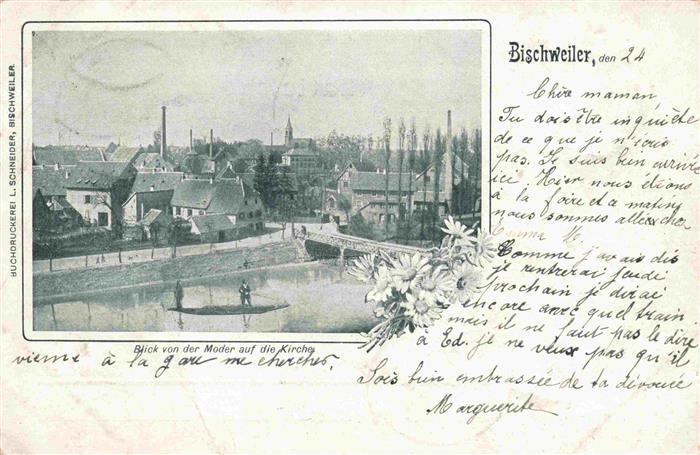 BUCHDRUCKEREI L. SCHNEIDER, BISCHWEILER.
Bischweiler, den 24
Chère maman,
Tu dois être inquiète
de ce que je n'écris
pas. Je suis bien arrivée
ici Hier nous étions
à la foire et ce matin
nous sommes allées chez
Emma M.
Comme j'avais dis
je rentrerai jeudi
prochain je dirai
encore avec quel train
mais il ne faut pas le dire
à Ed. je ne veux pas qu'il
Blick von der Moder auf die Kirche
vienne à la gare me chercher.
Sois bien embrassée de ta dévouée
Marguerite